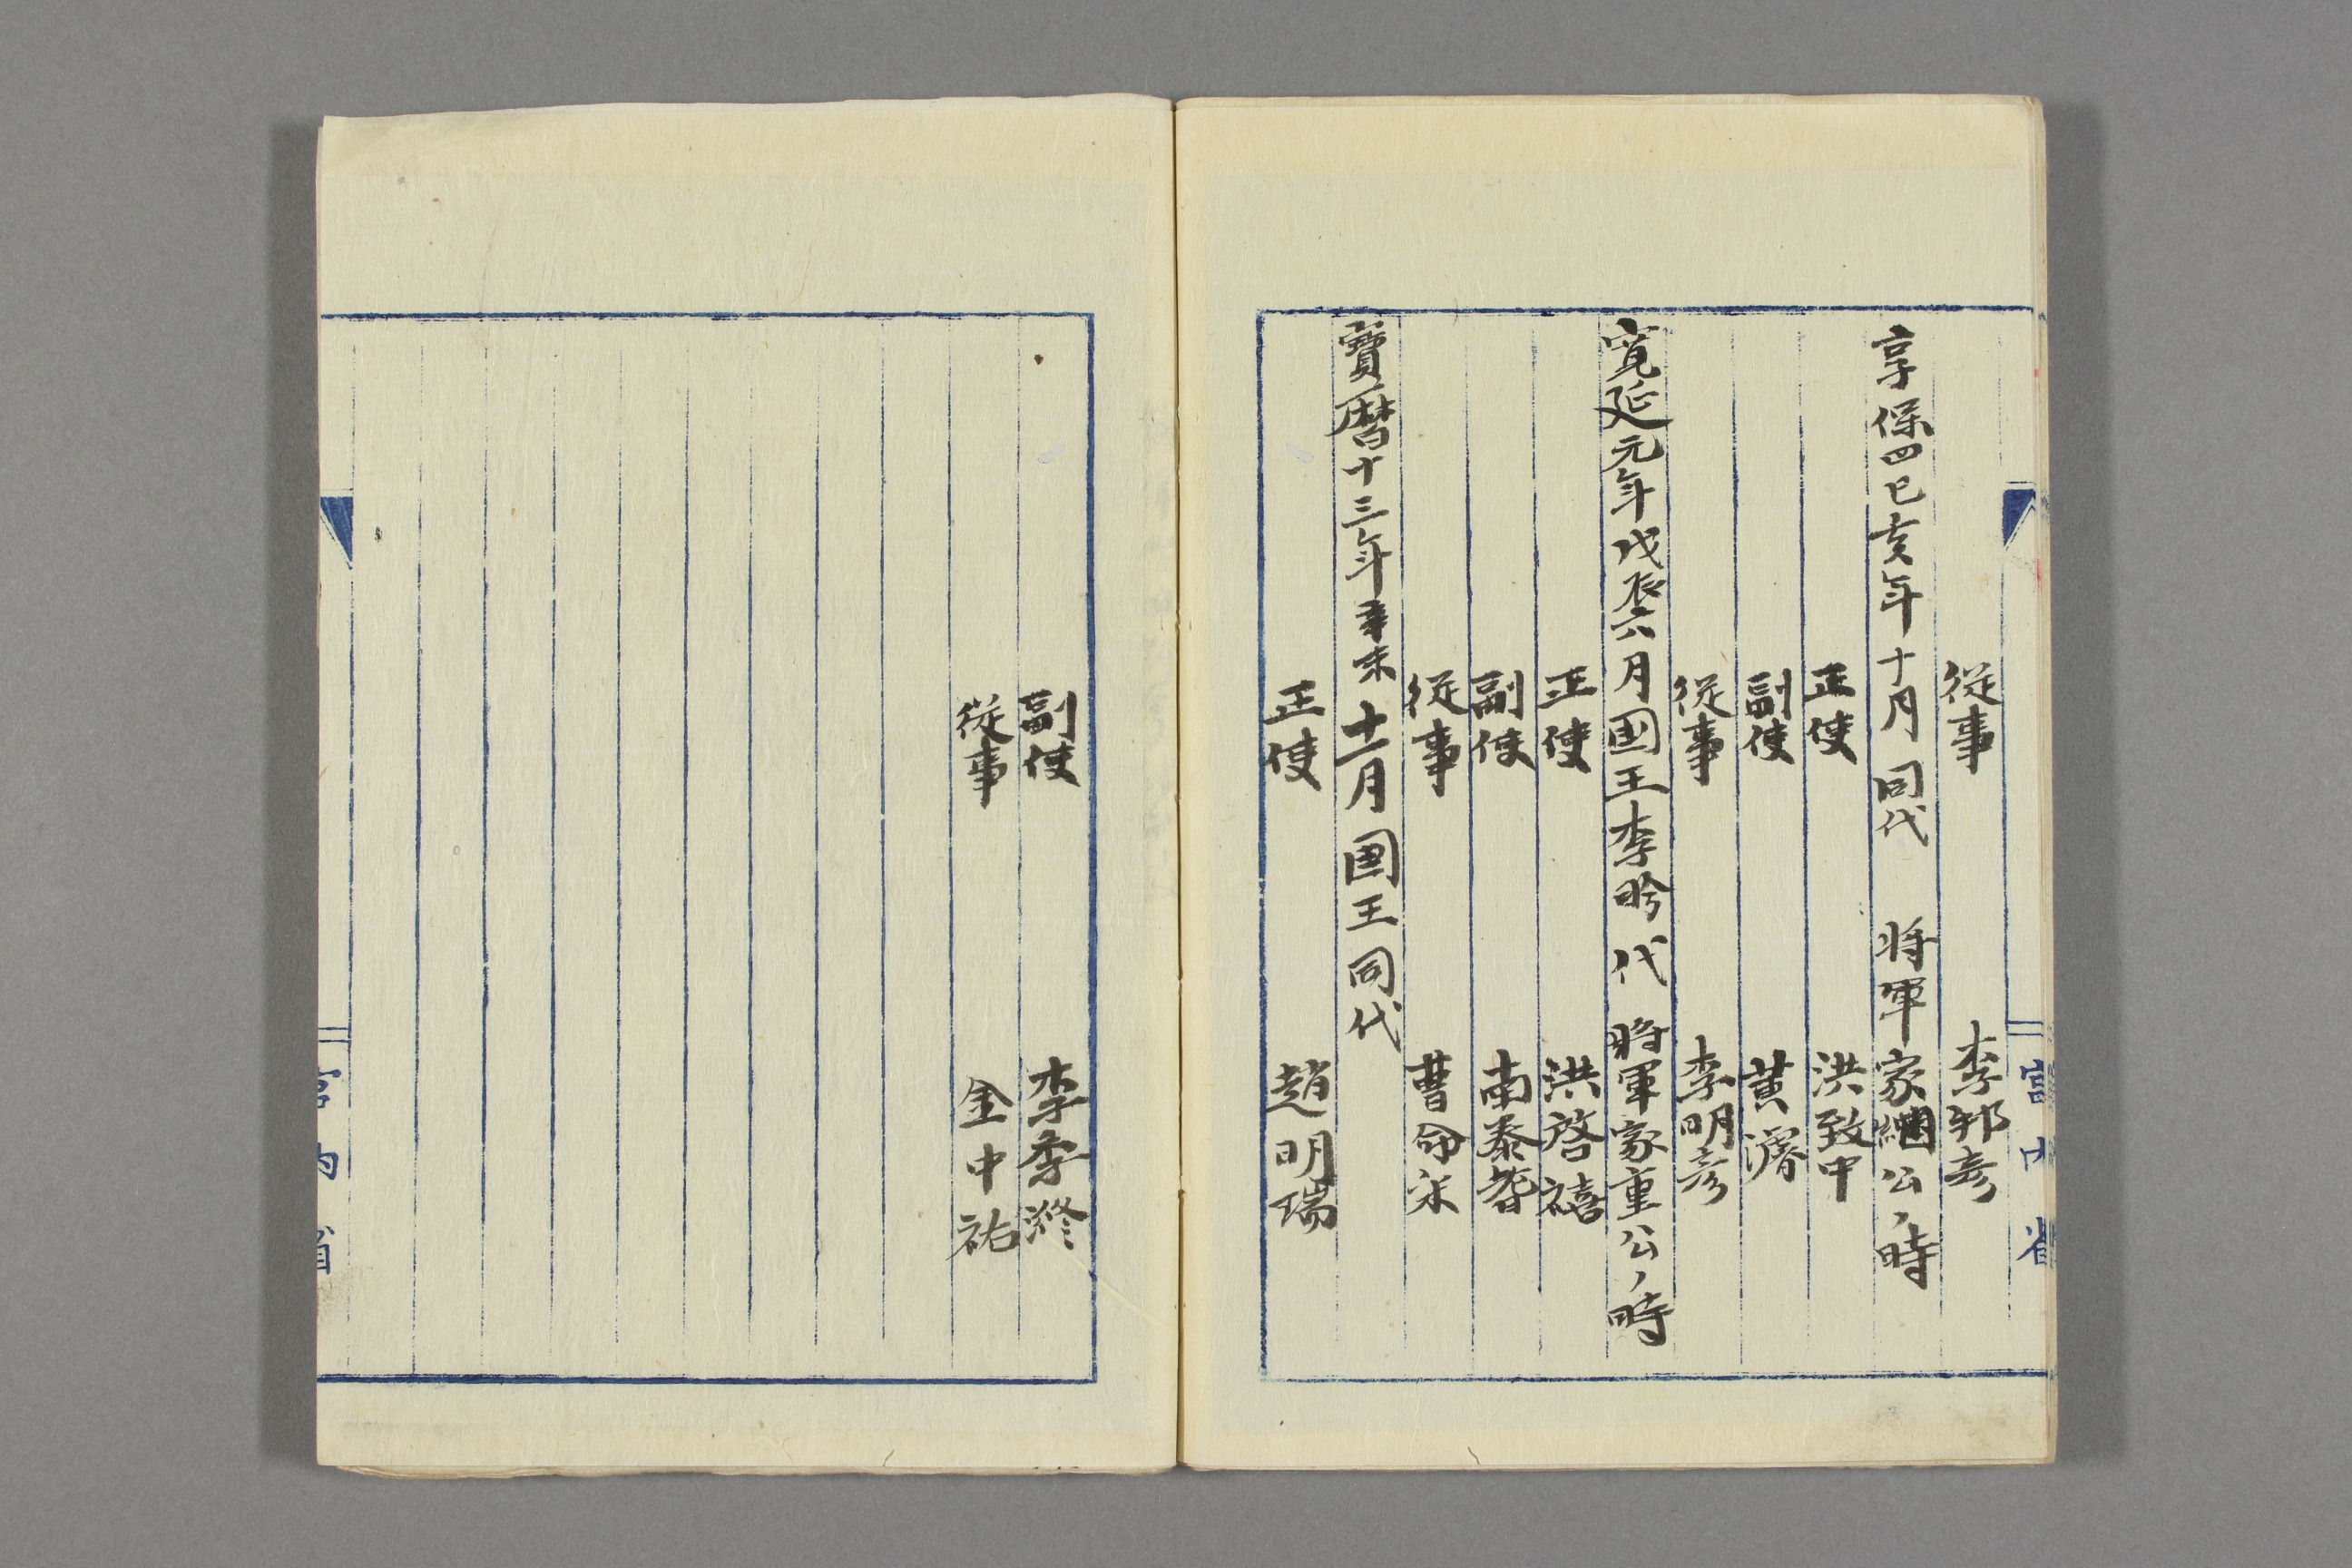 従事 李邦彦
享保四己亥年十月 同代 将軍家綱公ノ時
正使 洪致中
副使 黄濬
従事 李明彦
寛延元年戊辰六月国王李昑代 将軍家重公ノ時
正使 洪啓禧
副使 南泰耆
従事 曹命采
寶暦十三年辛未十一月国王同代
正使 趙明瑞
宮内省
副使 李季滲
従事 金中祐
宮内省